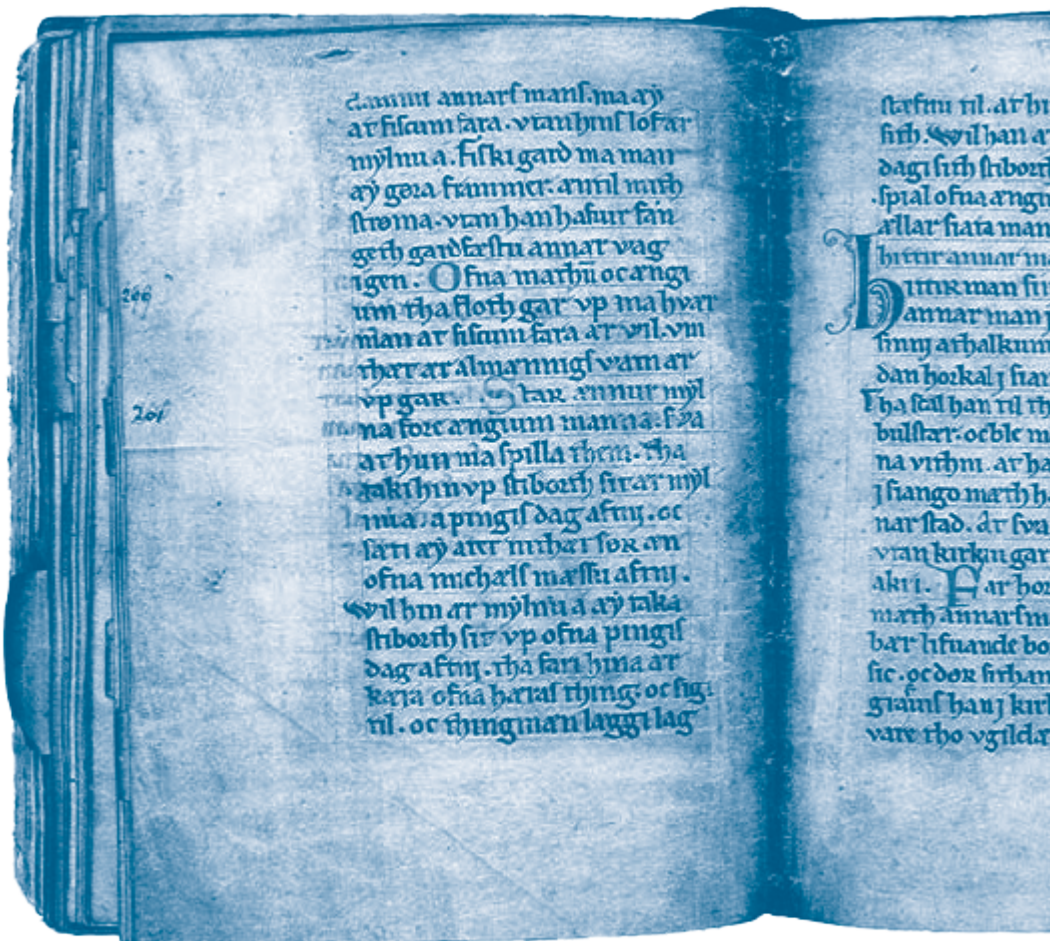 dammi annars mans. ma ay
at fiscum fara. vtan hins lof ær
mylnu a. Fiski gard ma man
ay gøra frammer. æn til mith
strøma. vtan han hafuir fan
geth gardfæstu annar vag
igen. Ofna mathu oc ængi
um tha floth gar vp ma hvær
man at fiscum fara ær vil. vm
thær ær almænnigs vatn ær
vp gar. Star ænnur myl
na fore ængium manna. sva
at hun ma spilla them. tha
taki hin vp stiborth sit ær myl
nu a. a pingis dag aftni. oc
sæti ay ater nithær før æn
ofna michals mæssu aftni.
Wil hin ær mylnu a ay taka
stiborth sit vp ofna pingis
dag aftni. tha fari hina at
kæra ofna hæras thing. oc sigi
til. oc thingmæn læggi lag
206
201
stæfnu til. at hi
sith. Wil han a
dagi sith stiborth
spial ofna ængu
ællar fiata man
hittir annar ma
Hittir man fin
annar man j
sinni at halkum
dan hor kal j sian
Tha scal han til th
bulstær. oc ble
na vithni. at ha
j siango mæth h
nar stad. Ær sva
vtan kirkiu gar
akri. Far hor
mæth annars m
bær lifuande bo
sic. oc dør sithan
grains han j kirk
vare tho vgilda